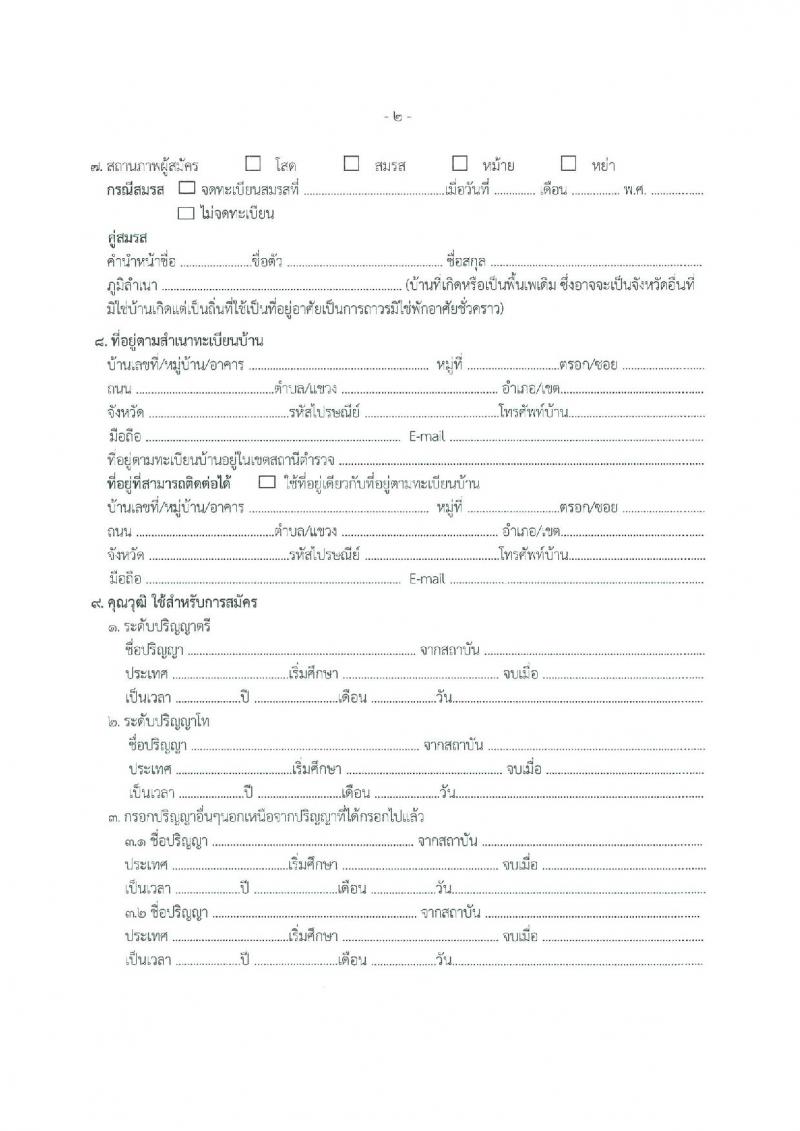 - ๒ -
๗. สถานภาพผู้สมัคร ☐ โสด ☐ สมรส ☐ หม้าย ☐ หย่า
กรณีสมรส ☐ จดทะเบียนสมรสที่ ........................................เมื่อวันที่ ............. เดือน ............... พ.ศ. .......................
☐ ไม่จดทะเบียน
คู่สมรส
คำนำหน้าชื่อ .....................ชื่อตัว ............................................... ชื่อสกุล ................................................................
ภูมิลำเนา ........................................................................ (บ้านที่เกิดหรือเป็นพื้นเพเดิม ซึ่งอาจจะเป็นจังหวัดอื่นที่
มิใช่บ้านเกิดแต่เป็นถิ่นที่ใช้เป็นที่อยู่อาศัยเป็นการถาวรมิใช่พักอาศัยชั่วคราว)
๘. ที่อยู่ตามสำเนาทะเบียนบ้าน
บ้านเลขที่/หมู่บ้าน/อาคาร ...................................................... หมู่ที่ ...........................ตรอก/ซอย ........................
ถนน .........................................ตำบล/แขวง ............................................... อำเภอ/เขต..........................................
จังหวัด .........................................รหัสไปรษณีย์ ........................................โทรศัพท์บ้าน........................................
มือถือ ............................................................................ E-mail ............................................................................
ที่อยู่ตามทะเบียนบ้านอยู่ในเขตสถานีตำรวจ ..............................................................................................................
ที่อยู่ที่สามารถติดต่อได้ ☐ ใช้ที่อยู่เดียวกับที่อยู่ตามทะเบียนบ้าน
บ้านเลขที่/หมู่บ้าน/อาคาร ...................................................... หมู่ที่ ...........................ตรอก/ซอย ........................
ถนน .........................................ตำบล/แขวง ............................................... อำเภอ/เขต..........................................
จังหวัด .........................................รหัสไปรษณีย์ ........................................โทรศัพท์บ้าน........................................
มือถือ ............................................................................ E-mail ............................................................................
๙. คุณวุฒิ ใช้สำหรับการสมัคร
๑. ระดับปริญญาตรี
ชื่อปริญญา .................................................................... จากสถาบัน .................................................................
ประเทศ ...................................เริ่มศึกษา ............................................... จบเมื่อ ................................................
เป็นเวลา ...................ปี .........................เดือน ...................วัน...........................................................................
๒. ระดับปริญญาโท
ชื่อปริญญา .................................................................... จากสถาบัน .................................................................
ประเทศ ...................................เริ่มศึกษา ............................................... จบเมื่อ ................................................
เป็นเวลา ...................ปี .........................เดือน ...................วัน...........................................................................
๓. กรอกปริญญาอื่นๆนอกเหนือจากปริญญาที่ได้กรอกไปแล้ว
๓.๑ ชื่อปริญญา ............................................................ จากสถาบัน .................................................................
ประเทศ ...................................เริ่มศึกษา ............................................... จบเมื่อ ................................................
เป็นเวลา ...................ปี .........................เดือน ...................วัน...........................................................................
๓.๒ ชื่อปริญญา ............................................................ จากสถาบัน .................................................................
ประเทศ ...................................เริ่มศึกษา ............................................... จบเมื่อ ................................................
เป็นเวลา ...................ปี .........................เดือน ...................วัน...........................................................................